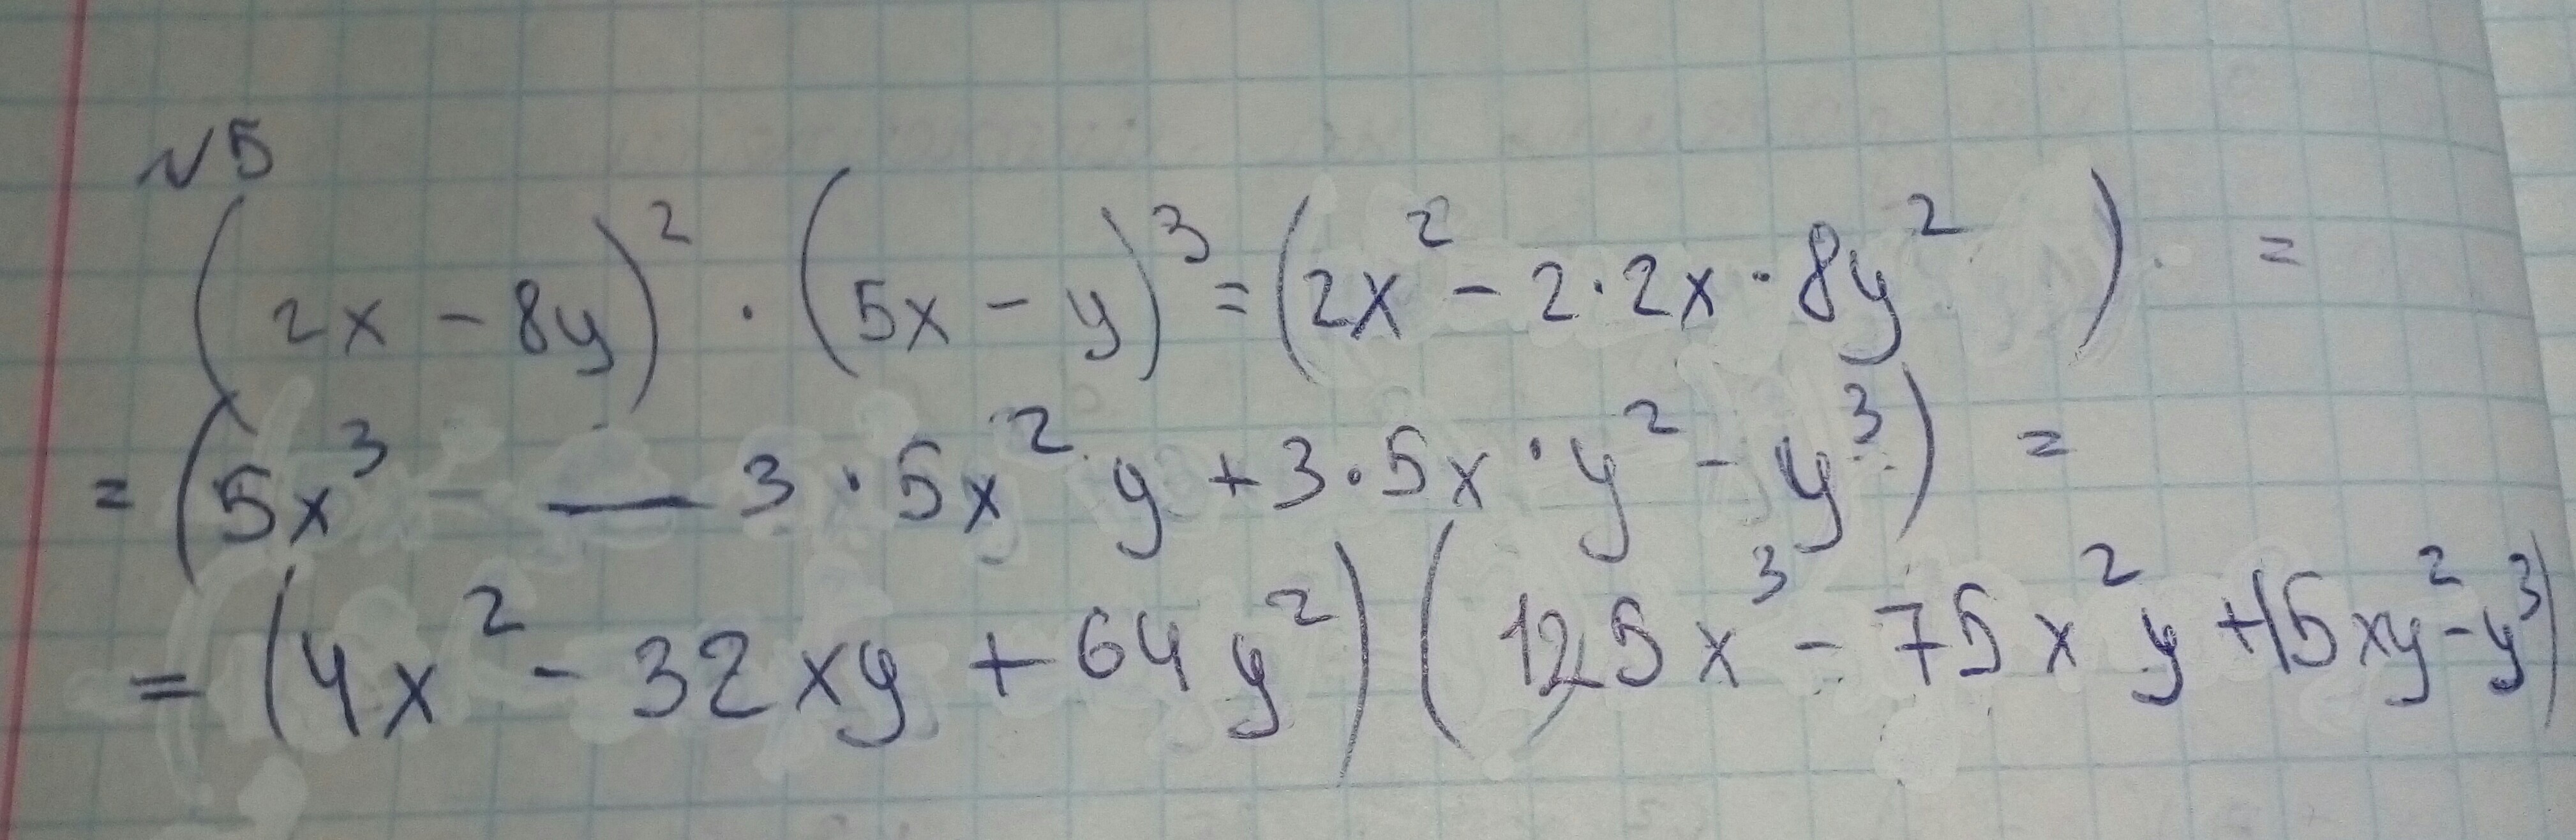 №5
(2x - 8y)² · (5x - y)³ = (2x² - 2·2x·8y²) · =
= (5x³ - — 3·5x² y + 3·5x·y² - y³) =
= (4x² - 32xy + 64y²)(125x³ - 75x²y + 15xy² - y³)